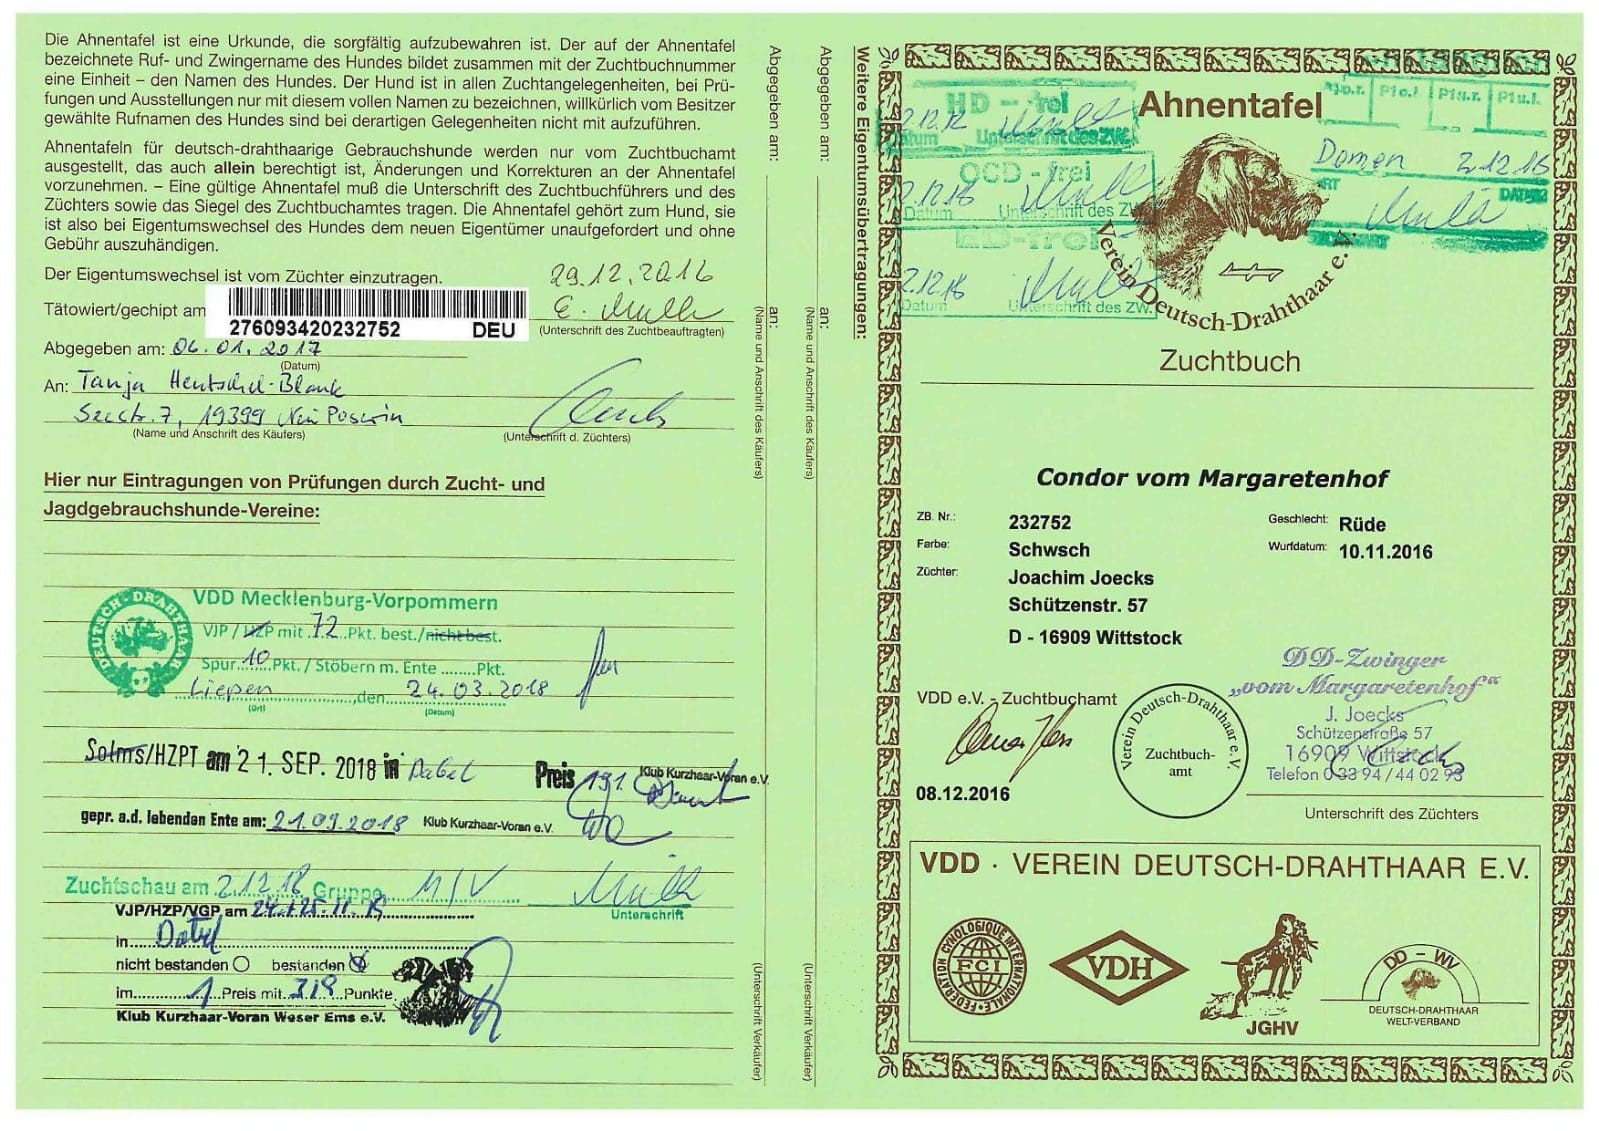 Die Ahnentafel ist eine Urkunde, die sorgfältig aufzubewahren ist. Der auf der Ahnentafel
bezeichnete Ruf- und Zwingername des Hundes bildet zusammen mit der Zuchtbuchnummer
eine Einheit – den Namen des Hundes. Der Hund ist in allen Zuchtangelegenheiten, bei Prü-
fungen und Ausstellungen nur mit diesem vollen Namen zu bezeichnen, willkürlich vom Besitzer
gewählte Rufnamen des Hundes sind bei derartigen Gelegenheiten nicht mit aufzuführen.
Ahnentafeln für deutsch-drahthaarige Gebrauchshunde werden nur vom Zuchtbuchamt
ausgestellt, das auch allein berechtigt ist, Änderungen und Korrekturen an der Ahnentafel
vorzunehmen. – Eine gültige Ahnentafel muß die Unterschrift des Zuchtbuchführers und des
Züchters sowie das Siegel des Zuchtbuchamtes tragen. Die Ahnentafel gehört zum Hund, sie
ist also bei Eigentumswechsel des Hundes dem neuen Eigentümer unaufgefordert und ohne
Gebühr auszuhändigen.
Der Eigentumswechsel ist vom Züchter einzutragen.
29.12.2016
Tätowiert/gechipt am
276093420232752 DEU
(Unterschrift des Zuchtbeauftragten)
Abgegeben am: 06.01.2017
(Datum)
An: Tanja Hentschel-Blank
Seestr. 7, 19399 Neu Poserin
(Name und Anschrift des Käufers)
(Unterschrift d. Züchters)
Hier nur Eintragungen von Prüfungen durch Zucht- und
Jagdgebrauchshunde-Vereine:
DEUTSCH-DRAHTHAAR
VDD Mecklenburg-Vorpommern
VJP / HZP mit 72 Pkt. best./nicht best.
Spur 10 Pkt. / Stöbern m. Ente ........ Pkt.
Liepen, den 24.03.2018
(Ort) (Datum)
Solms/HZPT am 21. SEP. 2018 in Dabel
Preis 191 Klub Kurzhaar-Voran e.V.
gepr. a.d. lebenden Ente am: 21.09.2018 Klub Kurzhaar-Voran e.V.
Zuchtschau am 2.12.18 Gruppe M/V
Unterschrift
VJP/HZP/VGP am
in
nicht bestanden bestanden
im 1 Preis mit 318 Punkte
Klub Kurzhaar-Voran Weser Ems e.V.
Abgegeben am:
an:
(Name und Anschrift des Käufers)
(Unterschrift Verkäufer)
Abgegeben am:
an:
(Name und Anschrift des Käufers)
(Unterschrift Verkäufer)
Weitere Eigentumsübertragungen:
Ahnentafel
HD - frei
Datum Unterschrift des ZW.
OCD - frei
Datum Unterschrift des ZW.
Datum Unterschrift des ZW.
2.12.16
Verein Deutsch-Drahthaar e.V.
Zuchtbuch
Condor vom Margaretenhof
ZB. Nr.: 232752
Geschlecht: Rüde
Farbe: Schwsch
Wurfdatum: 10.11.2016
Züchter: Joachim Joecks
Schützenstr. 57
D - 16909 Wittstock
DD-Zwinger
„vom Margaretenhof“
J. Joecks
Schützenstraße 57
16909 Wittstock
Telefon 0 33 94 / 44 02 93
VDD e.V. - Zuchtbuchamt
Verein Deutsch-Drahthaar e.V.
Zuchtbuch-
amt
08.12.2016
Unterschrift des Züchters
VDD · VEREIN DEUTSCH-DRAHTHAAR E.V.
FEDERATION CYNOLOGIQUE INTERNATIONALE
FCI
VDH
JGHV
DD - WV
DEUTSCH-DRAHTHAAR
WELT-VERBAND